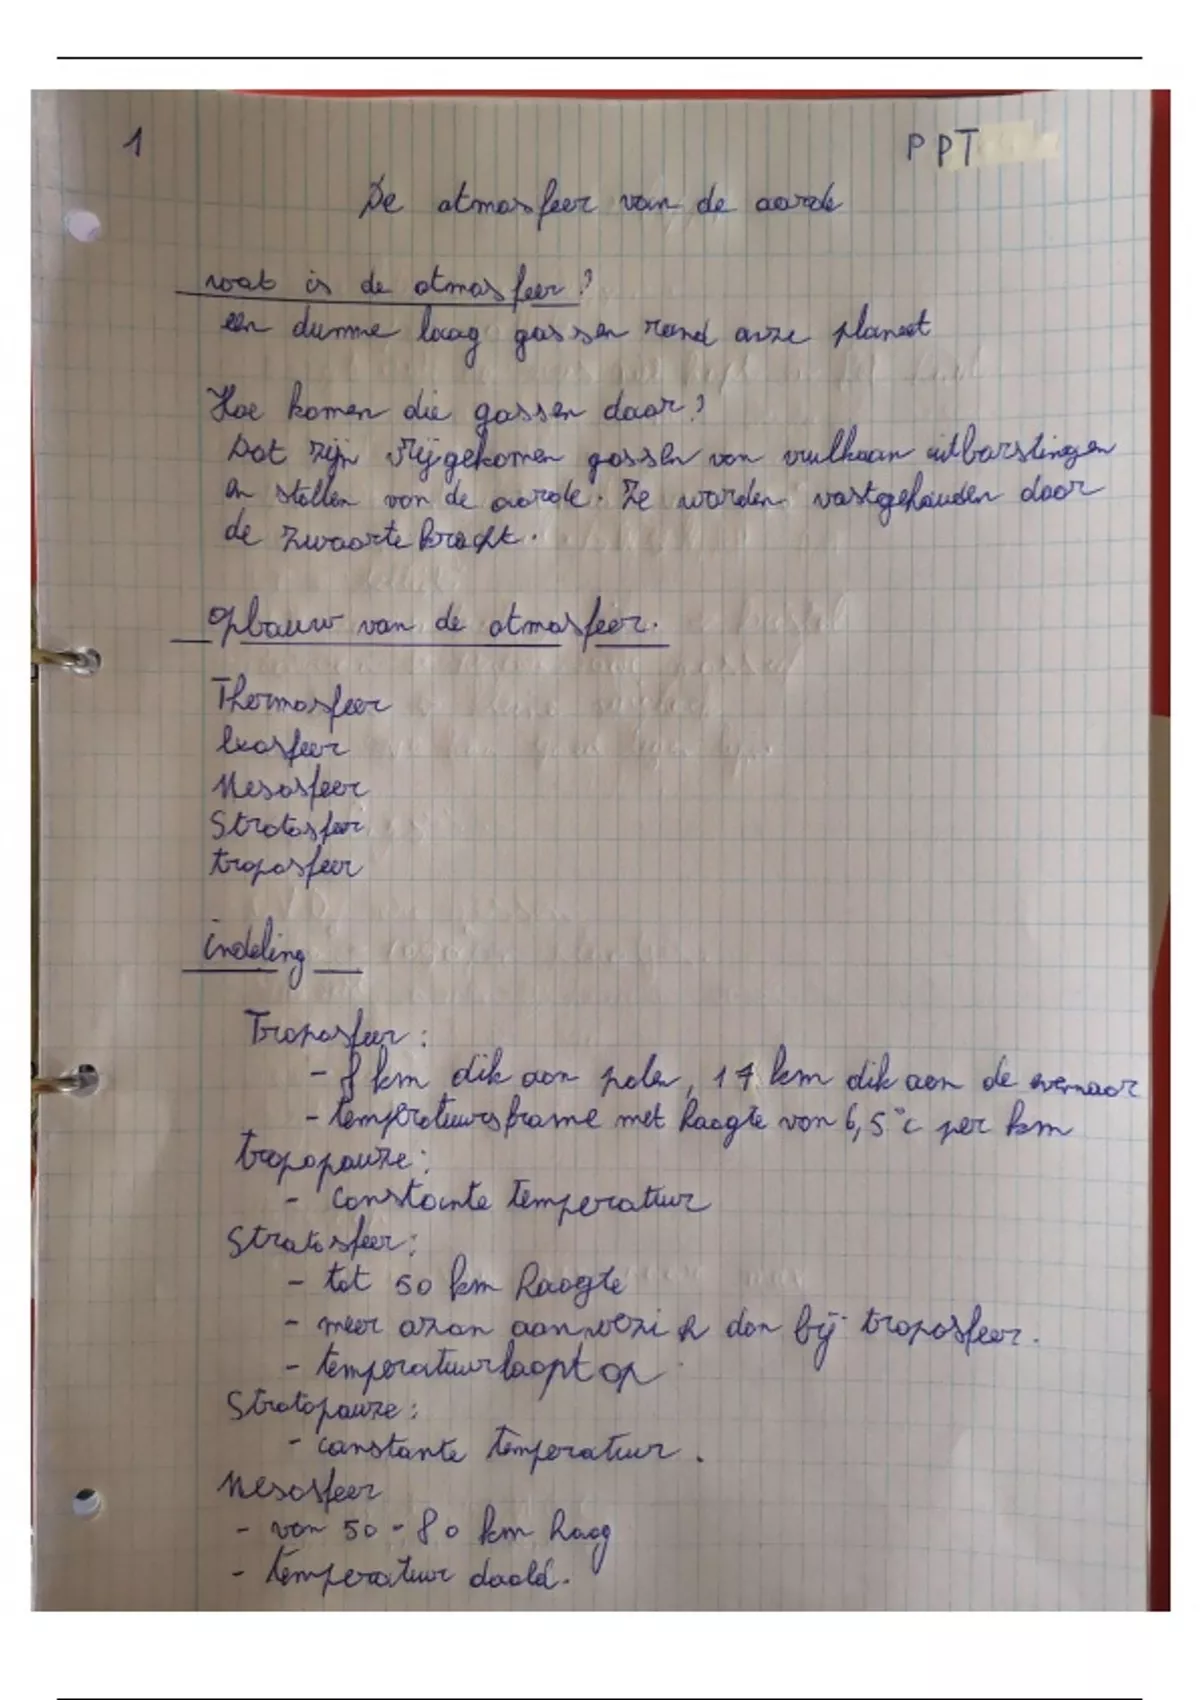 1
PPT
De atmosfeer van de aarde
wat is de atmosfeer?
een dunne laag gassen rond onze planeet
Hoe komen die gassen daar?
Dat zijn vrijgekomen gassen van vulkaan uitbarstingen
en stollen van de aarde. Ze worden vastgehouden door
de zwaartekracht.
Opbouw van de atmosfeer.
Thermosfeer
Exosfeer
Mesosfeer
Stratosfeer
troposfeer
indeling
Troposfeer:
- 8 km dik aan polen, 17 km dik aan de evenaar
- temperatuursframe met hoogte van 6,5°c per km
tropopauze:
- constante temperatuur
Stratosfeer:
- tot 50 km hoogte
- meer ozon aanwezi k dan bij troposfeer.
- temperatuur loopt op
Stratopauze:
- constante temperatuur.
Mesosfeer
- van 50-80 km hoog
- temperatuur daald.